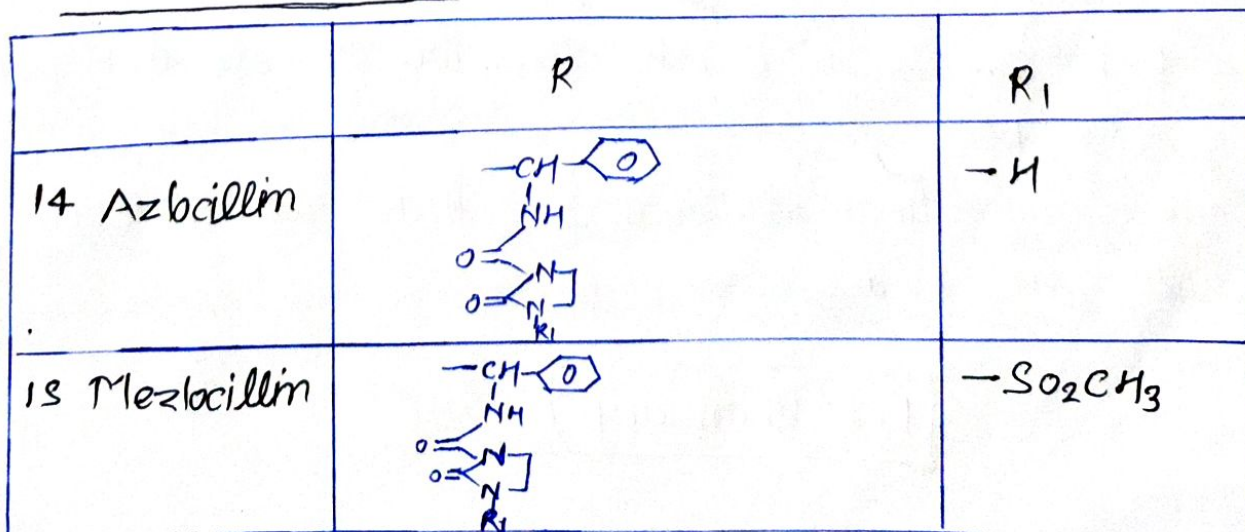 R R1
14 Azlocillin
—CH—
NH
O
N
O N
R1
—H
15 Mezlocillin
—CH—
NH
O
N
O
N
R1
—SO2CH3